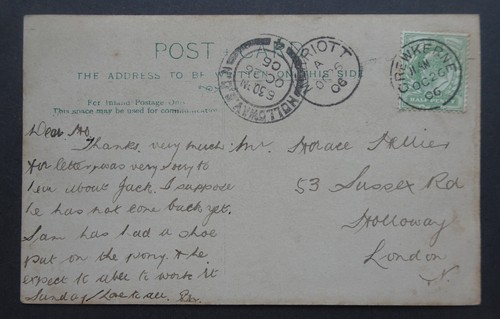 POST CARD
THE ADDRESS TO BE WRITTEN ON THIS SIDE
For Inland Postage Only
This space may be used for communication
HOLLOWAY
6.30
OC
06
MERRIOTT
A
OC
06
CREWKERNE
OC 26
06
Dear Ho
Thanks very much
for letter, was very sorry to
hear about Jack. I suppose
he has not come back yet.
Sam has had a shoe
put on the pony. & he
expect to able to work it
Sunday / Love to all.
Mr. Horace
53 Sussex Rd
Holloway
London
N.